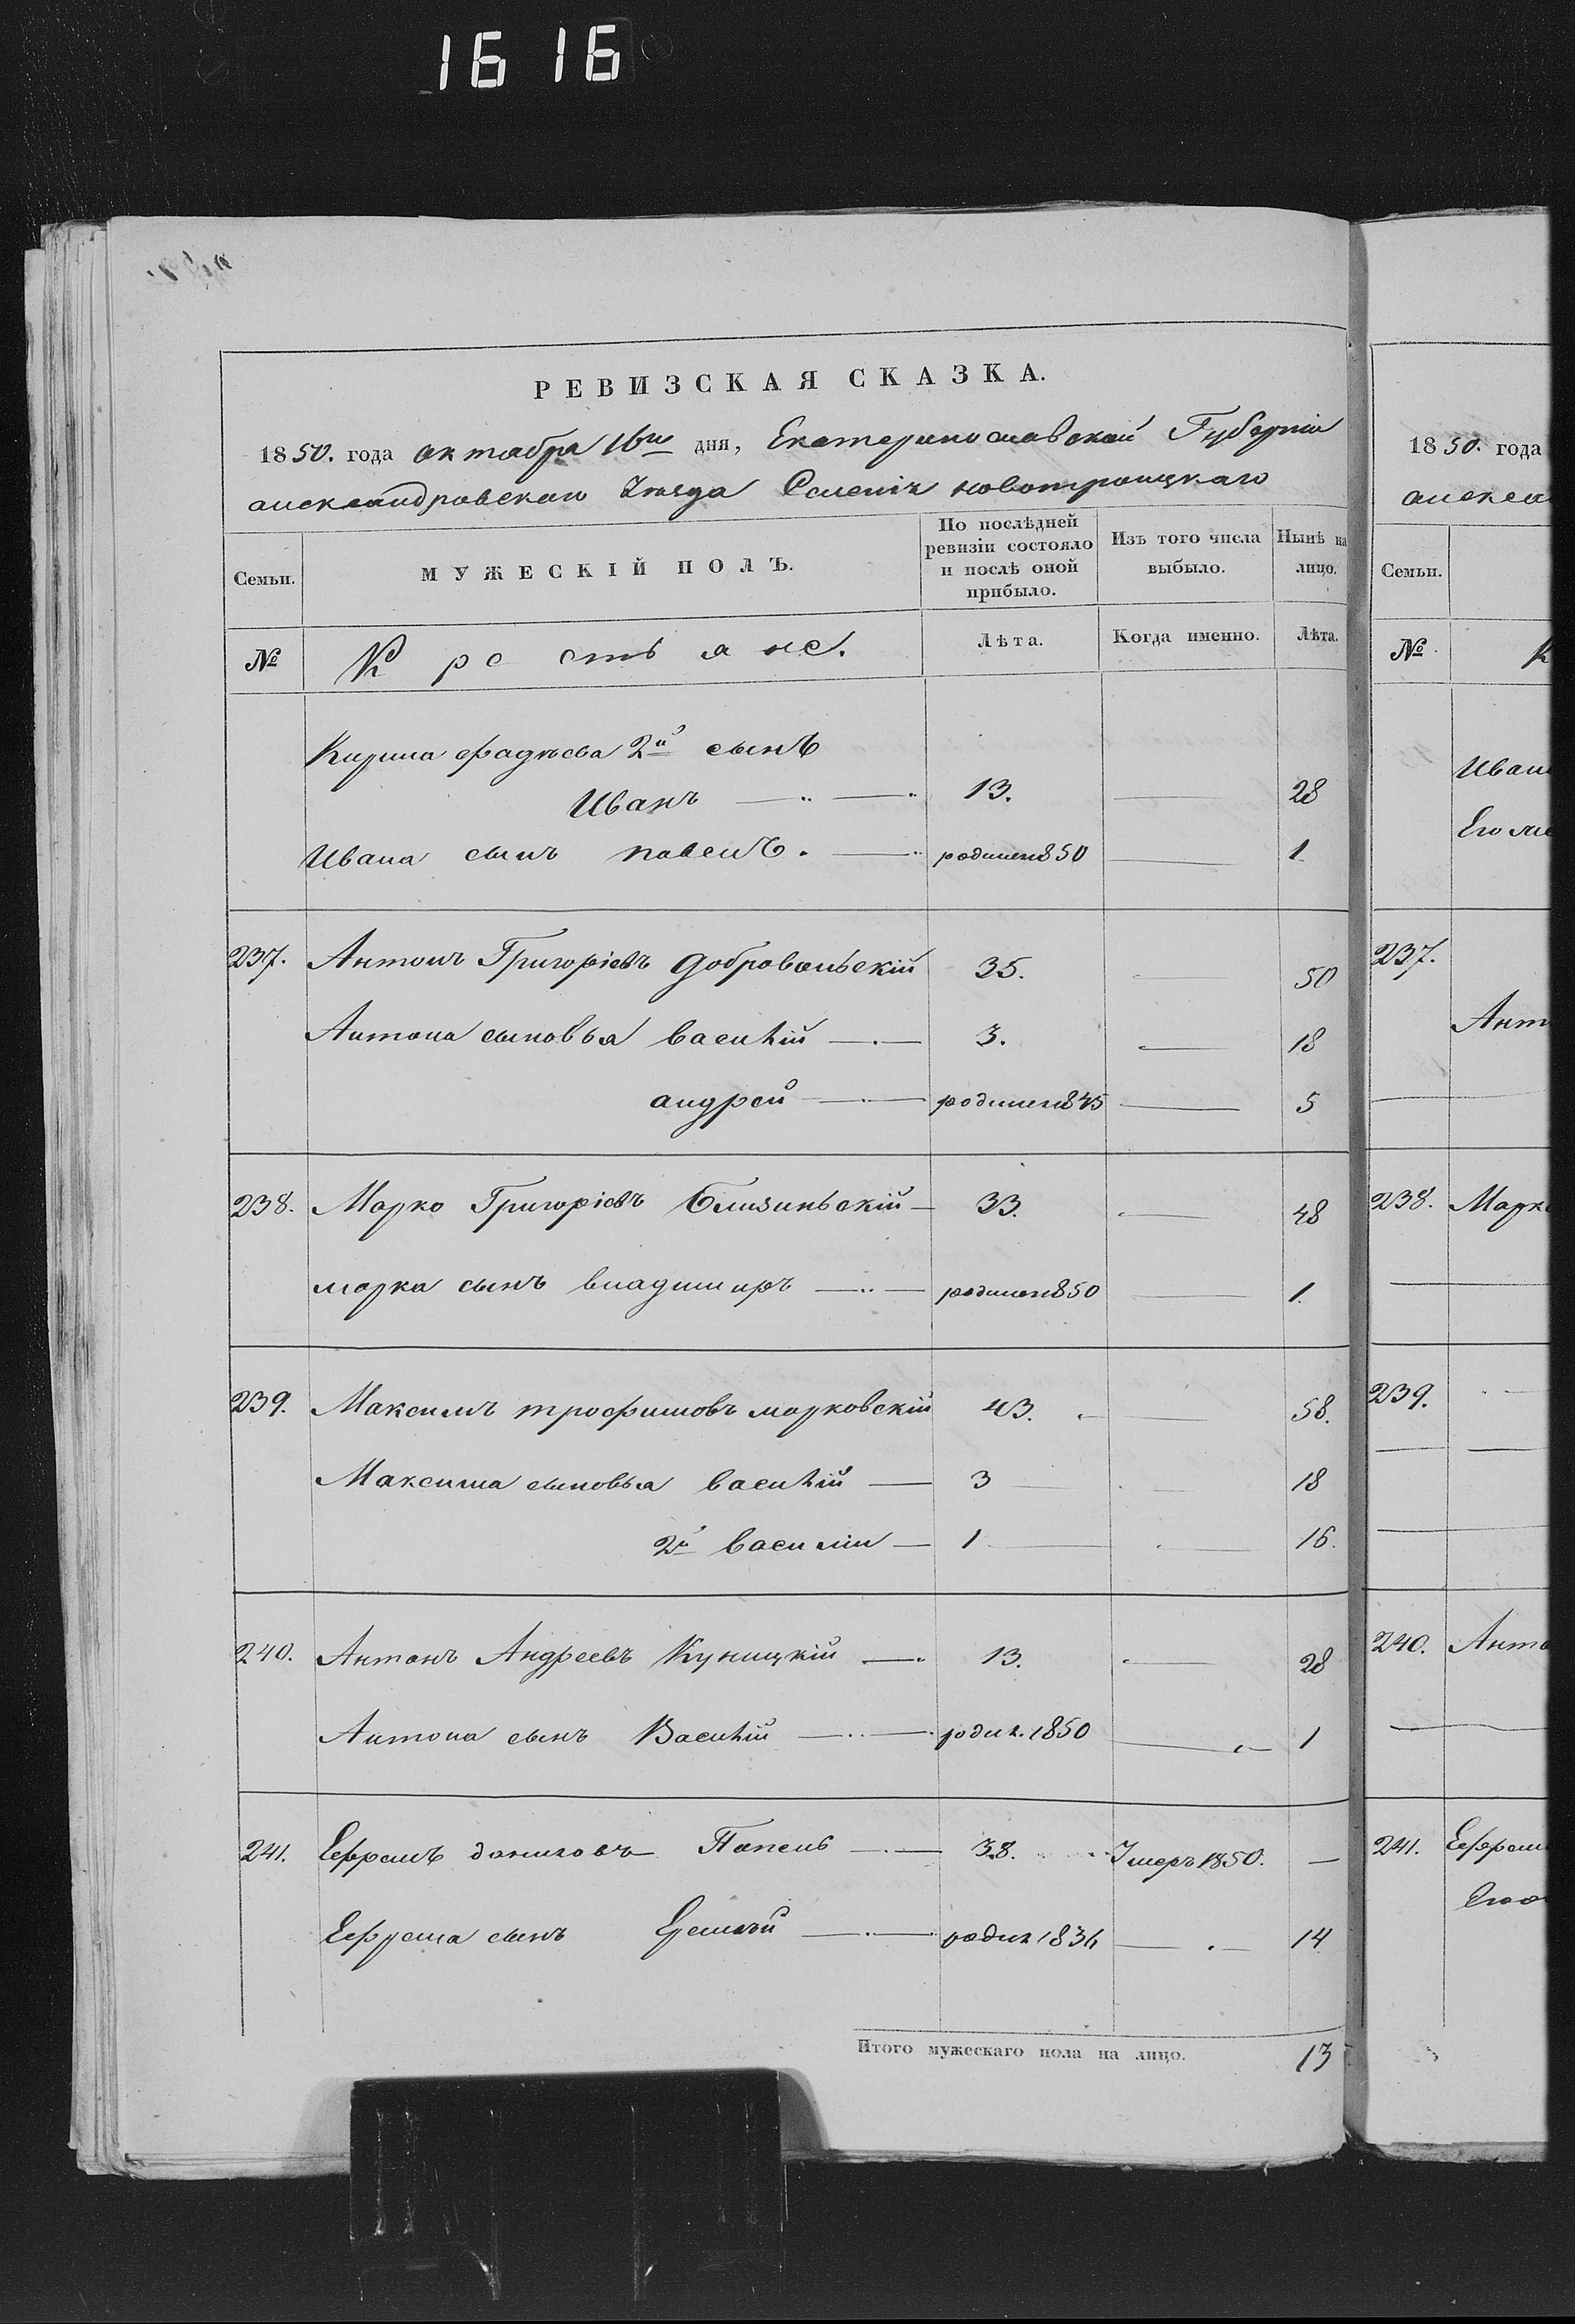 1616
РЕВИЗСКАЯ СКАЗКА.
1850. года октабра 16го дня, Екатеринославской Губерніи
александровскаго Уезда Селенія новотроицкаго
Семьи.
МУЖЕСКІЙ ПОЛЪ.
По послѣдней ревизіи состояло и послѣ оной прибыло.
Изъ того числа выбыло.
Нынѣ на лицо.
№ Крестьяне. Лѣта. Когда именно. Лѣта.
Кирила фадѣева 2й сынъ
Иванъ 13. 28
Ивана сынъ павелъ. родился 850 1
237. Антонъ Григоріевъ добровольскій 35. 50
Антона сыновья василій 3. 18
андрей родился 845 5
238. Марко Григоріевъ Близиньскій 33. 48
марка сынъ владимиръ родился 850 1.
239. Максимъ трофимовъ марковскій 43. 58.
Максима сыновья василій 3 18
2й василій 1 16.
240. Антонъ Андреевъ Куницкій 13. 28
Антона сынъ Василій родил. 1850 1
241. Ефремъ даниловъ Папель 38. Умеръ 1850. —
Ефрема сынъ родил 1836 14
Итого мужескаго пола на лицо. 13
1850. года
алекса
Семьи.
№ К
Иван
237.
Анто
238. Марк
239.
240. Анто
241. Ефрем